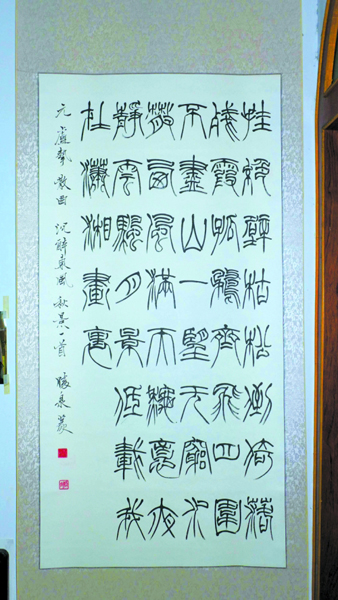 挂絕壁枯松倒倚落
殘霞孤鶩齊飛四圍
不盡山一望无窮水
散西風滿天秋意夜
靜雲颿月景低載我
在瀟湘畫裏
元 盧摯 散曲 沉醉東風 秋景一首